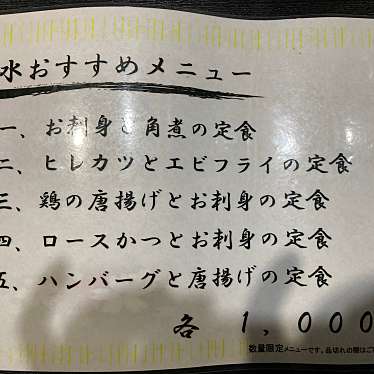 水おすすめメニュー
一、お刺身と角煮の定食
二、ヒレカツとエビフライの定食
三、鶏の唐揚げとお刺身の定食
四、ロースかつとお刺身の定食
五、ハンバーグと唐揚げの定食
各 1,000
数量限定メニューです。品切れの際はご